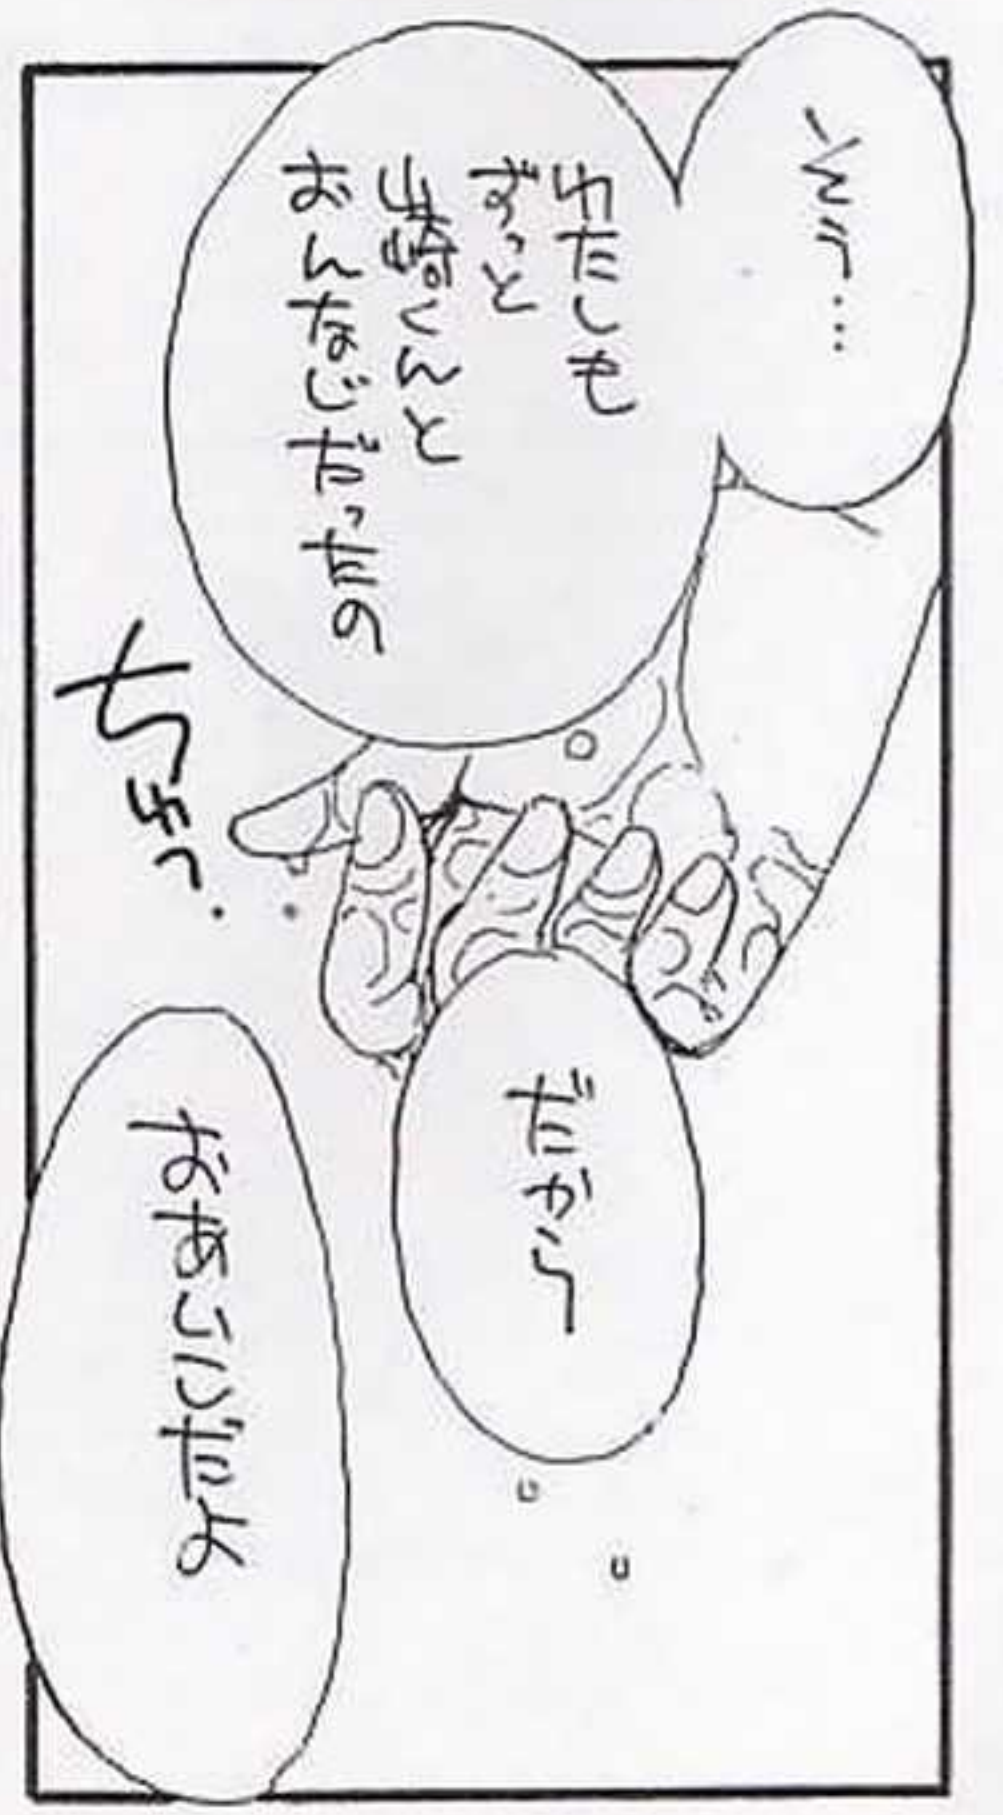 わたしも
ずっと
山崎くんと
おんなじだったの
だから
おあいこだよ